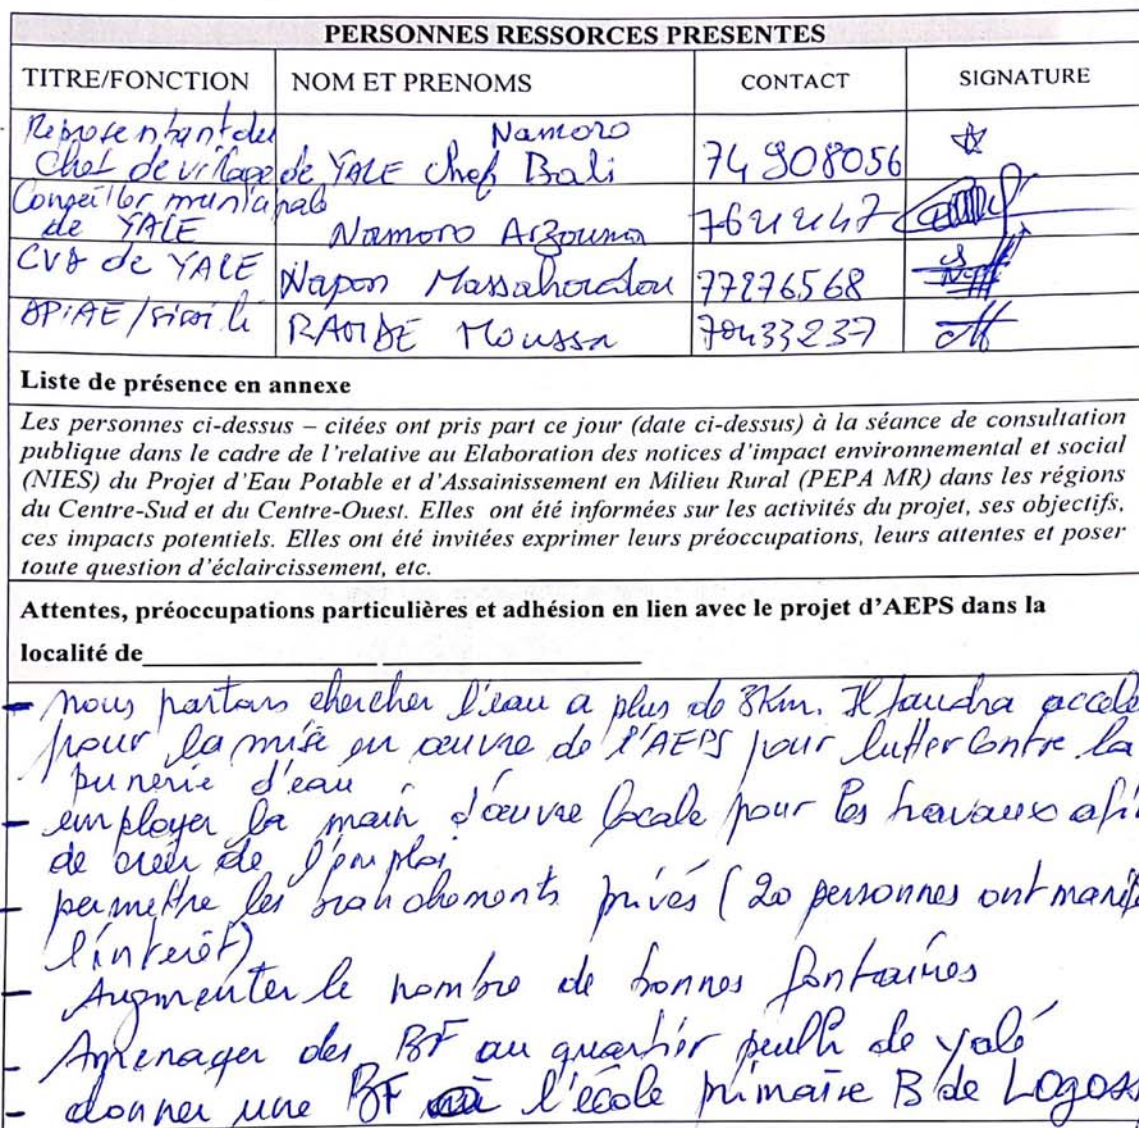 PERSONNES RESSORCES PRESENTES
TITRE/FONCTION NOM ET PRENOMS CONTACT SIGNATURE
Representant du Namoro
Chef de village de YALE Chef Bali 74 908056
Conseiller municipals
de YALE Namoro Arzouma
CVD de YALE Napon 77276568
Moussa 70433237
Liste de présence en annexe
Les personnes ci-dessus – citées ont pris part ce jour (date ci-dessus) à la séance de consultation
publique dans le cadre de l'relative au Elaboration des notices d'impact environnemental et social
(NIES) du Projet d'Eau Potable et d'Assainissement en Milieu Rural (PEPA MR) dans les régions
du Centre-Sud et du Centre-Ouest. Elles ont été informées sur les activités du projet, ses objectifs,
ces impacts potentiels. Elles ont été invitées exprimer leurs préoccupations, leurs attentes et poser
toute question d'éclaircissement, etc.
Attentes, préoccupations particulières et adhésion en lien avec le projet d'AEPS dans la
localité de
- nous partons chercher l'eau a plus de 3Km. Il faudra accele
pour la mise en œuvre de l'AEPS pour lutter contre la
punerie d'eau
- employer la main d'œuvre locale pour les travaux afi
de créer de l'emploi
- permettre les branchements privés (20 personnes ont manife
l'interêt)
- Augmenter le nombre de bonnes fontaines
- Amenager des BF au quartier peulh de yalé
- donner une BF à l'école primaire B de Logoss